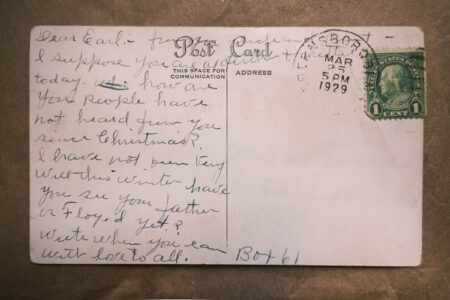 Dear Earl:-
I suppose you are
today. how are
You people have
not heard from you
since Christmas?
I have not been very
well this winter have
you see your father
or Floyd yet?
Write when you can
with love to all.
Post Card
THIS SPACE FOR
COMMUNICATION
ADDRESS
Box 61
ENSBORO
MAR
25
5 PM
1929
1 1
CENT